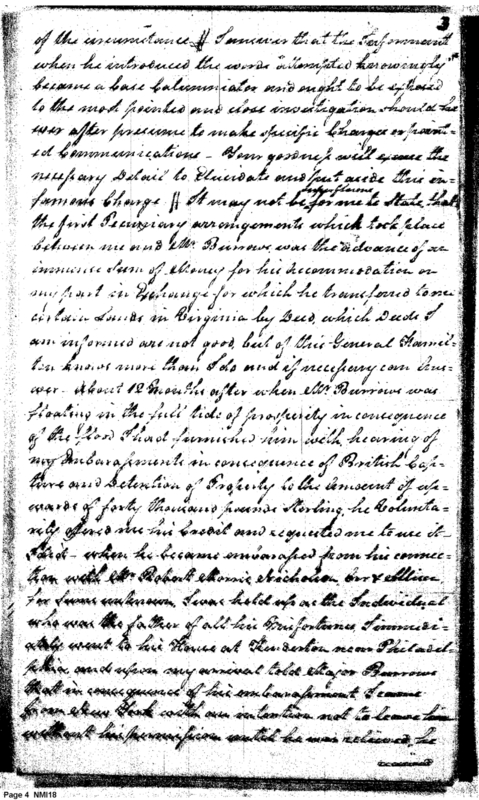 3
of the circumstance // I answer that the Informant
when he introduced the words "attempted knowingly"
became a base Calumniator and ought to be exposed
to the most pointed and close investigation should he
ever after presume to make specific Charges or point-
ed Communications - Your goodness will excuse the
necessary Detail to Elucidate and put aside this in-
famous Charge // It may not be for me to State, that
the first Pecuniary arrangements which took place
between me and Mr. Burrows was the advance of an
immence Sum of Money for his accommodation on
my part in Exchange for which he transferred to me
certain Lands in Virginia by Deed, which Deeds I
am informed are not good, but of this General Hamil-
ton knows more than I do and if necessary can Ans-
wer - About 12 Months after when Mr. Burrows was
floating in the full tide of prosperity in consequence
of the flood I had furnished him with, hearing of
my Embarassments in consequence of British Cap-
ture and Detention of Property to the Amount of up-
wards of forty thousand pounds Sterling, he Volunta-
rily offered me his Credit and requested me to use it
I did - when he became embarassed from his connec-
tion with Mr. Robert Morris Nicholson &
for sums unknown, I was held up as the Individual
who was the father of all his Misfortunes, I immedi-
ately went to his House at Kinderton near Philadel-
phia and upon my arrival told Major Burrows
that in consequence of his embarassment I came
from New York with an intention not to leave him
without his permission until he was relieved, he
Page 4 NMI18